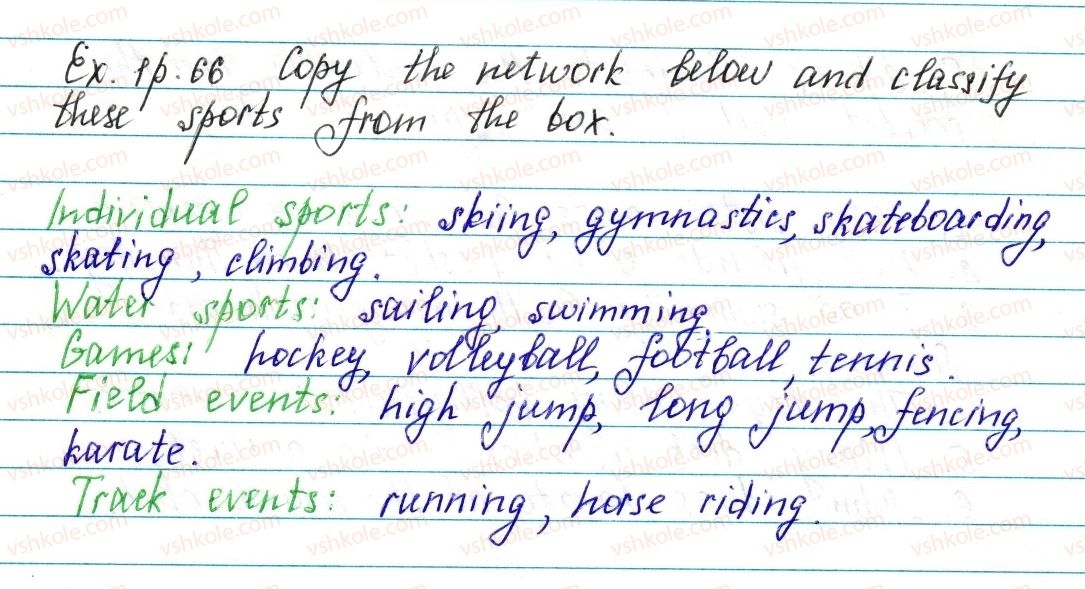 Ex. 1 p. 66 Copy the network below and classify
these sports from the box.
Individual sports: skiing, gymnastics, skateboarding,
skating, climbing.
Water sports: sailing, swimming.
Games: hockey, volleyball, football, tennis.
Field events: high jump, long jump, fencing,
karate.
Track events: running, horse riding.